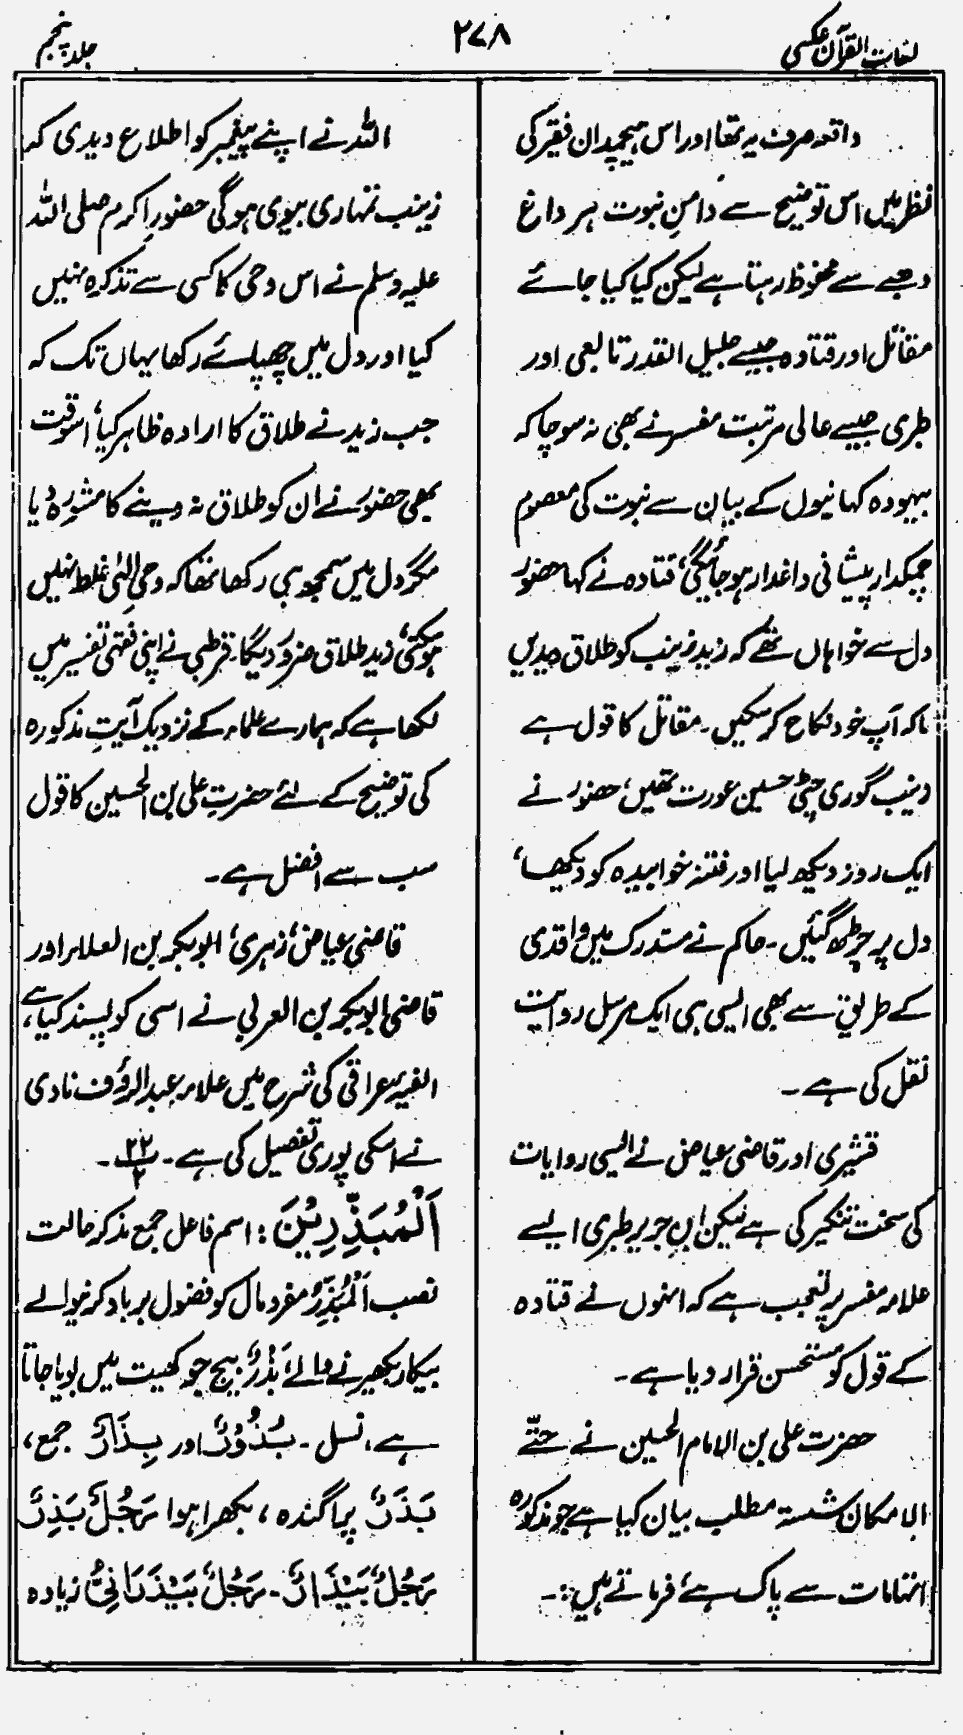 لغات القرآن عکسی
۲۷۸
جلد پنجم
واقعہ صرف یہ تھا اور اس ہیچمدان فقیر کی
نظر میں اس توضیح سے دامنِ نبوت ہر داغ
دھبے سے محفوظ رہتا ہے لیکن کیا کیا جائے
مقاتل اور قتادہ جیسے جلیل القدر تابعی اور
طبری جیسے عالی مرتبت مفسر نے بھی نہ سوچا کہ
بیہودہ کہانیوں کے بیان سے نبوت کی معصوم
چمکدار پیشانی داغدار ہو جائیگی، قتادہ نے کہا حضورؐ
دل سے خواہاں تھے کہ زید زینب کو طلاق دیدیں
تاکہ آپ خود نکاح کر سکیں۔ مقاتل کا قول ہے
زینب گوری چٹی حسین عورت تھیں، حضورؐ نے
ایک روز دیکھ لیا اور فتنہ خوابیدہ کو دیکھا،
دل پر چڑھ گئیں۔ حاکم نے مستدرک میں واقدی
کے طریق سے بھی ایسی ہی ایک مرسل روایت
نقل کی ہے۔
قشیری اور قاضی عیاض نے ایسی روایات
کی سخت تنکیر کی ہے لیکن ابن جریر طبری ایسے
علامہ مفسر پر تعجب ہے کہ انہوں نے قتادہ
کے قول کو مستحسن قرار دیا ہے۔
حضرت علی بن الامام الحسین نے حتّے
الامکان شستہ مطلب بیان کیا ہے جو مذکورہ
اتہامات سے پاک ہے، فرماتے ہیں:۔
اللہ نے اپنے پیغمبر کو اطلاع دیدی کہ
زینب تمہاری بیوی ہوگی حضورِ اکرم صلی اللہ
علیہ وسلم نے اس وحی کا کسی سے تذکرہ نہیں
کیا اور دل میں چھپائے رکھا یہاں تک کہ
جب زید نے طلاق کا ارادہ ظاہر کیا، اسوقت
بھی حضورؐ نے ان کو طلاق نہ دینے کا مشورہ دیا
مگر دل میں سمجھ ہی رکھا تھا کہ وحی الٰہی غلط نہیں
ہو سکتی، زید طلاق ضرور دیگا۔ قرطبی نے اپنی فقہی تفسیر میں
لکھا ہے کہ ہمارے علماء کے نزدیک آیتِ مذکورہ
کی توضیح کے لئے حضرت علی بن الحسین کا قول
سب سے افضل ہے۔
قاضی عیاض، زہری، ابوبکر بن العلاء اور
قاضی ابوبکر بن العربی نے اسی کو پسند کیا ہے،
الفیہ عراقی کی شرح میں علامہ عبدالرؤف نادی
نے اسکی پوری تفصیل کی ہے۔ ۲۲/۲۔
اَلْمُبَذِّرِيْنَ: اسم فاعل جمع مذکر حالت
نصب اَلْمُبَذِّرُ مفرد مال کو فضول برباد کرنیوالے
بیکار بکھیرنے والے، بَذْرٌ بیج جو کھیت میں بویا جاتا
ہے، نسل۔ بُذُوْرٌ اور بِذَارٌ جمع،
بَذَرٌ پراگندہ، بکھرا ہوا رَجُلٌ بَذِرٌ
رَجُلٌ بَيْذَارٌ۔ رَجُلٌ بَيْذَرَانِيٌّ زیادہ